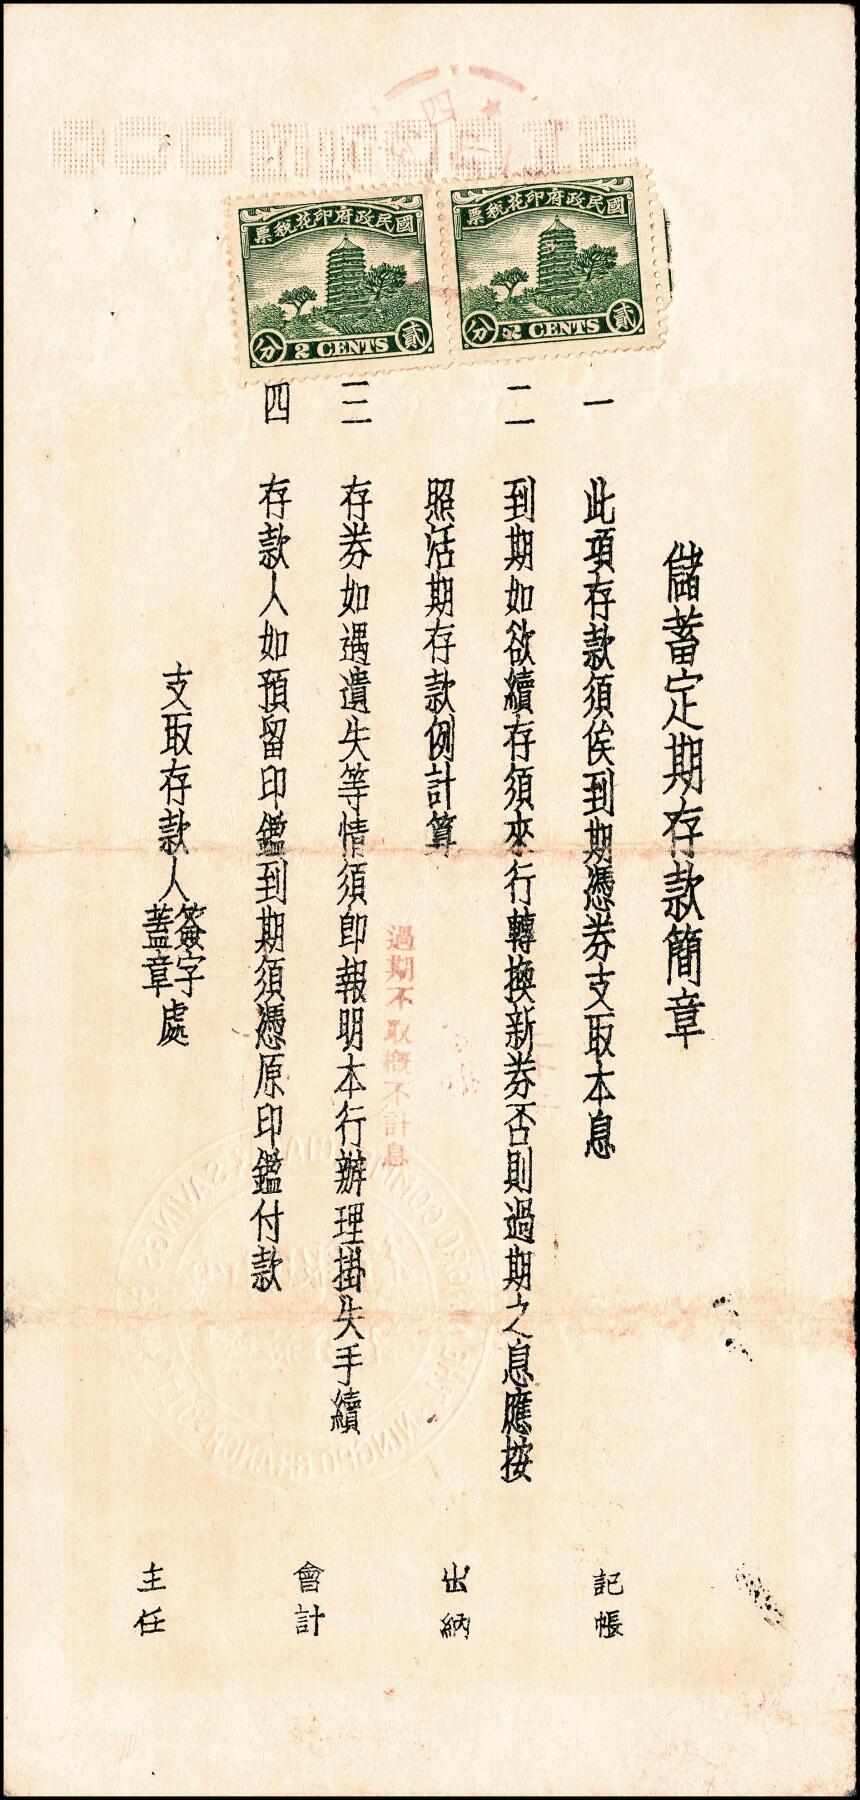 國民政府印花稅票
貳 2 CENTS 分
國民政府印花稅票
貳 2 CENTS 分
儲蓄定期存款簡章
一 此項存款須俟到期憑券支取本息
二 到期如欲續存須來行轉換新券否則過期之息應按
照活期存款例計算
三 存券如遇遺失等情須卽報明本行辦理掛失手續
四 存款人如預留印鑑到期須憑原印鑑付款
支取存款人簽字蓋章處
過期不取概不計息
記帳
出納
會計
主任